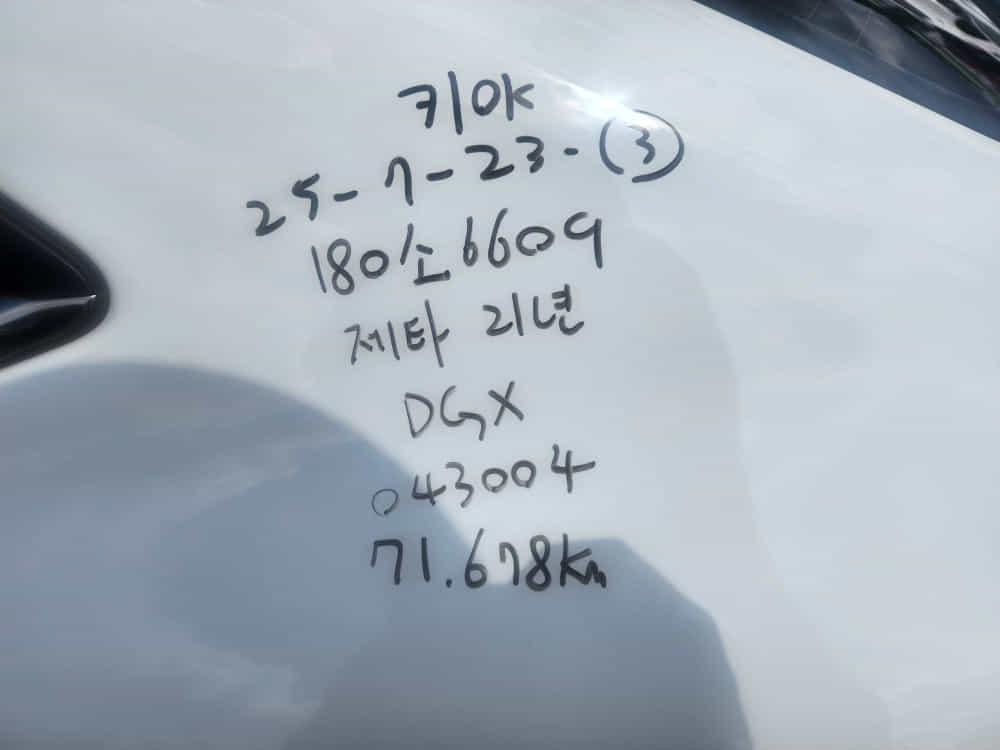 키OK
25-7-23-③
180소6609
제타 21년
DGX
043004
71.678km